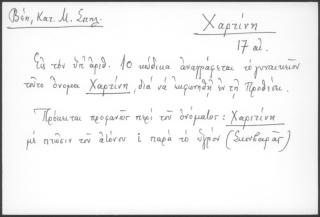 Βέη, Κατ. Μ. Σπηλ.
Χαρτίνη
17 αἰ.
Εἰς τὸν ὑπ' ἀριθ. 10 κώδικα ἀναγράφεται τὸ γυναικεῖον
τοῦτο ὄνομα Χαρτίνη, διὰ νὰ ἐκφωνηθῇ ἐν τῇ Προθέσει.
Πρόκειται προφανῶς περὶ τοῦ ὀνόματος: Χαριτίνη
μὲ πτῶσιν τοῦ ἀτόνου ι παρὰ τὸ ὑγρόν (Σκουβαρᾶς)